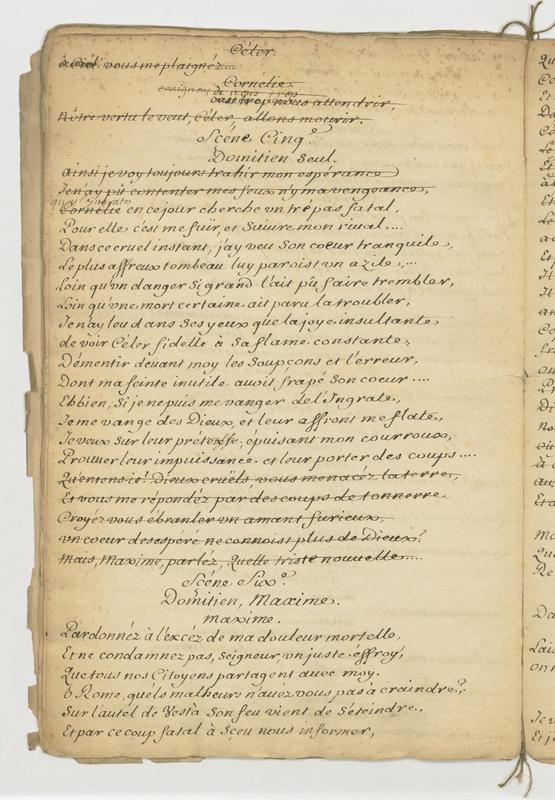 Céler.
ô Ciel! vous me plaignéz...
Cornelie.
c'est trop nous attendrir,
Nôtre vertu le veut, Céler, allons mourir.
Scéne Cinq.e
Domitien Seul.
Ainsi je voy toujours trahir mon espérance
Je n'ay pû contenter mes feux n'y ma vengeance,
quoy l'Ingrate
Cornélie en ce jour cherche vn trépas fatal,
Pour elle c'est me fuir, et Suivre mon rival....
Dans ce cruel instant, j'ay veu Son coeur tranquile,
Le plus affreux tombeau luy paroist vn azile,...
Loin qu'vn danger Si grand l'ait pû faire trembler,
Loin qu'vne mort certaine ait paru la troubler,
Je n'ay leu dans Ses yeux que la joye insultante,
de voir Céler fidelle à Sa flame constante,
Démentir devant moy les Soupçons et l'erreur,
Dont ma feinte inutile auoit frapé Son coeur....
Ehbien, Si je ne puis me vanger de l'Ingrate,
Je me vange des Dieux, et leur affront me flate,
Je veux Sur leur prétresse, épuisant mon courroux,
Prouuer leur impuissance et leur porter des coups....
Qu'entens-je! Dieux cruëls vous menacéz la terre,
Et vous me répondéz par des coups de tonnerre,
Croyéz vous ébranler vn amant furieux,
vn coeur desespéré ne connoist plus de Dieux?
Mais, Maxime, parléz, Quelle triste nouuelle....
Scéne Six.e
Domitien, Maxime.
maxime.
Pardonnéz à l'éxcéz de ma douleur mortelle,
Et ne condamnéz pas, Seigneur, vn juste éffroy,
Que tous nos Citoyens partagent auec moy.
ô Rome, quels malheurs n'auez vous pas à craindre?
Sur l'autel de Vesta Son feu vient de S'éteindre,
Et par ce coup fatal à Sçeu nous informer,